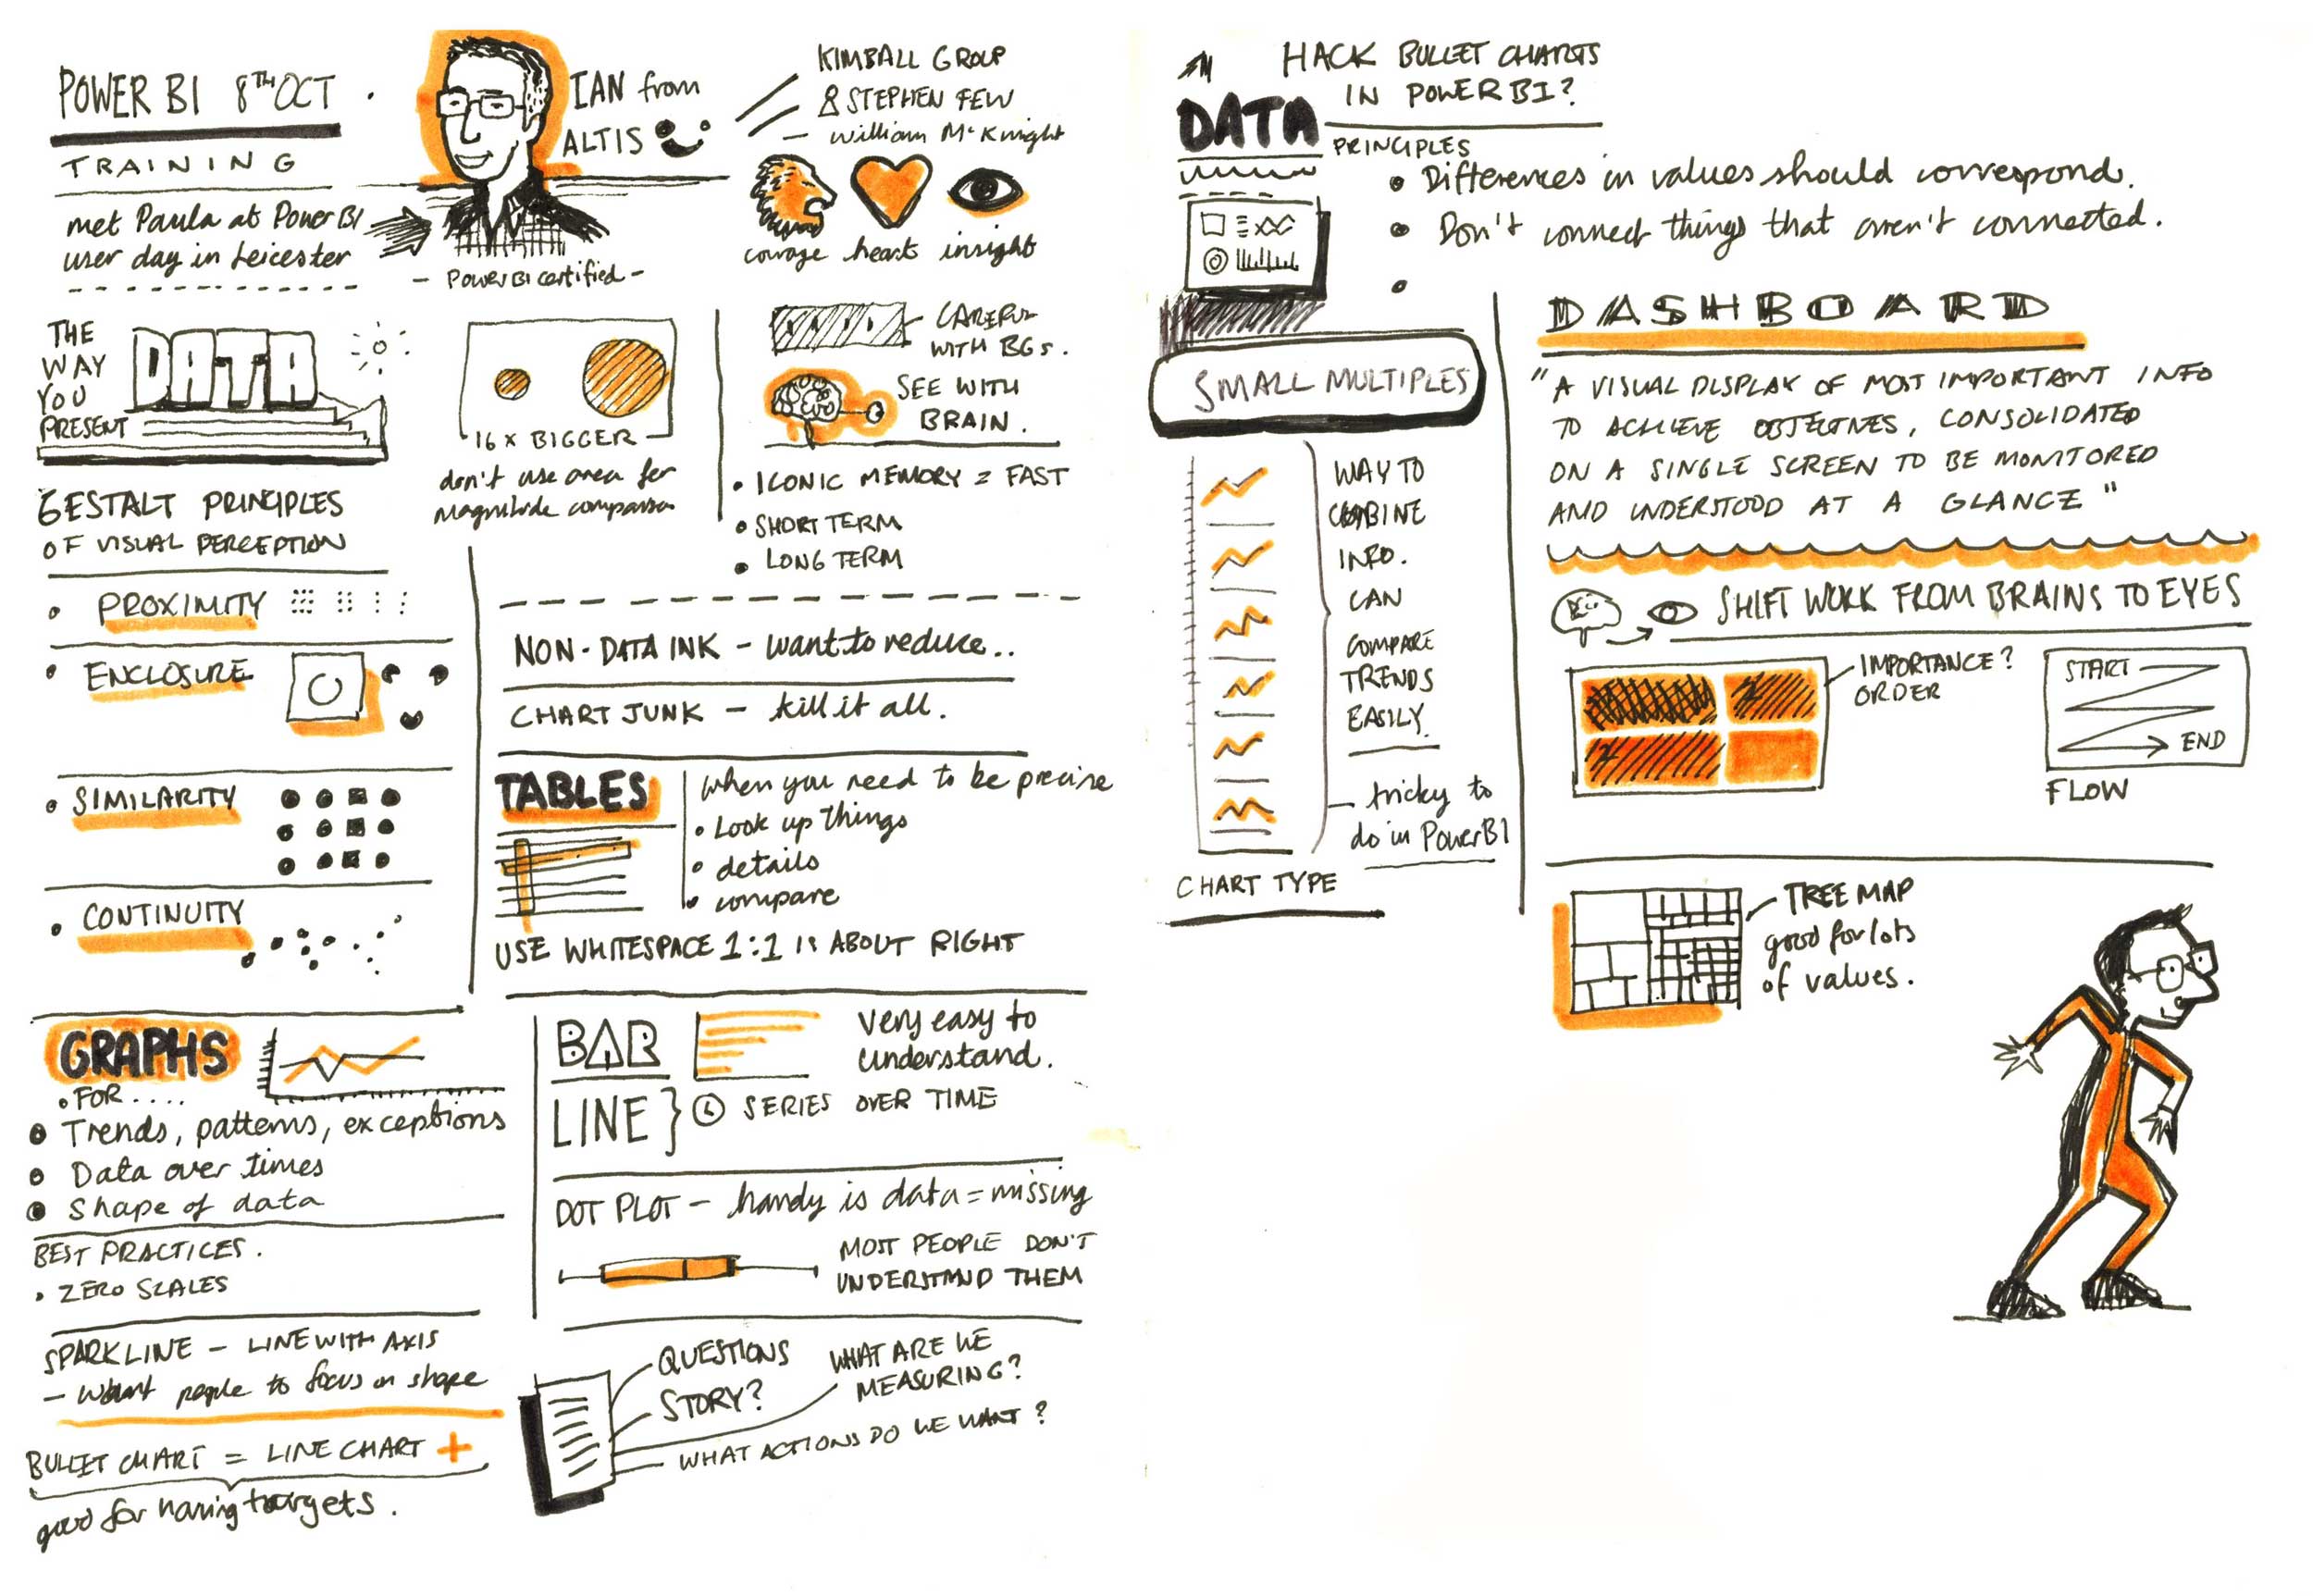 POWER BI 8TH OCT .
TRAINING
met Paula at Power BI
user day in Leicester
IAN from
ALTIS
- Power BI certified -
KIMBALL GROUP
& STEPHEN FEW
- William McKnight
courage heart insight
THE
WAY
YOU
PRESENT
DATA
16 X BIGGER
don't use area for
magnitude comparison
CAREFUL
WITH BGs.
SEE WITH
BRAIN.
• ICONIC MEMORY = FAST
• SHORT TERM
• LONG TERM
GESTALT PRINCIPLES
OF VISUAL PERCEPTION
• PROXIMITY
• ENCLOSURE
• SIMILARITY
• CONTINUITY
NON-DATA INK - want to reduce..
CHART JUNK - kill it all.
TABLES
when you need to be precise
• Look up things
• details
• compare
USE WHITESPACE 1:1 IS ABOUT RIGHT
GRAPHS
• FOR ....
• Trends, patterns, exceptions
• Data over times
• Shape of data
BEST PRACTICES.
• ZERO SCALES
SPARKLINE - LINE WITH AXIS
- Want people to focus on shape
BULLET CHART = LINE CHART +
good for having targets.
BAR
Very easy to
understand.
LINE } SERIES OVER TIME
DOT PLOT - handy is data = missing
MOST PEOPLE DON'T
UNDERSTAND THEM
QUESTIONS
STORY?
WHAT ARE WE
MEASURING?
WHAT ACTIONS DO WE WANT?
HACK BULLET CHARTS
IN POWER BI?
DATA
PRINCIPLES
• Differences in values should correspond.
• Don't connect things that aren't connected.
•
SMALL MULTIPLES
WAY TO
COMBINE
INFO.
CAN
COMPARE
TRENDS
EASILY.
- tricky to
do in Power BI
CHART TYPE
DASHBOARD
"A VISUAL DISPLAY OF MOST IMPORTANT INFO
TO ACHIEVE OBJECTIVES, CONSOLIDATED
ON A SINGLE SCREEN TO BE MONITORED
AND UNDERSTOOD AT A GLANCE"
SHIFT WORK FROM BRAINS TO EYES
IMPORTANCE?
ORDER
START
END
FLOW
TREE MAP
good for lots
of values.